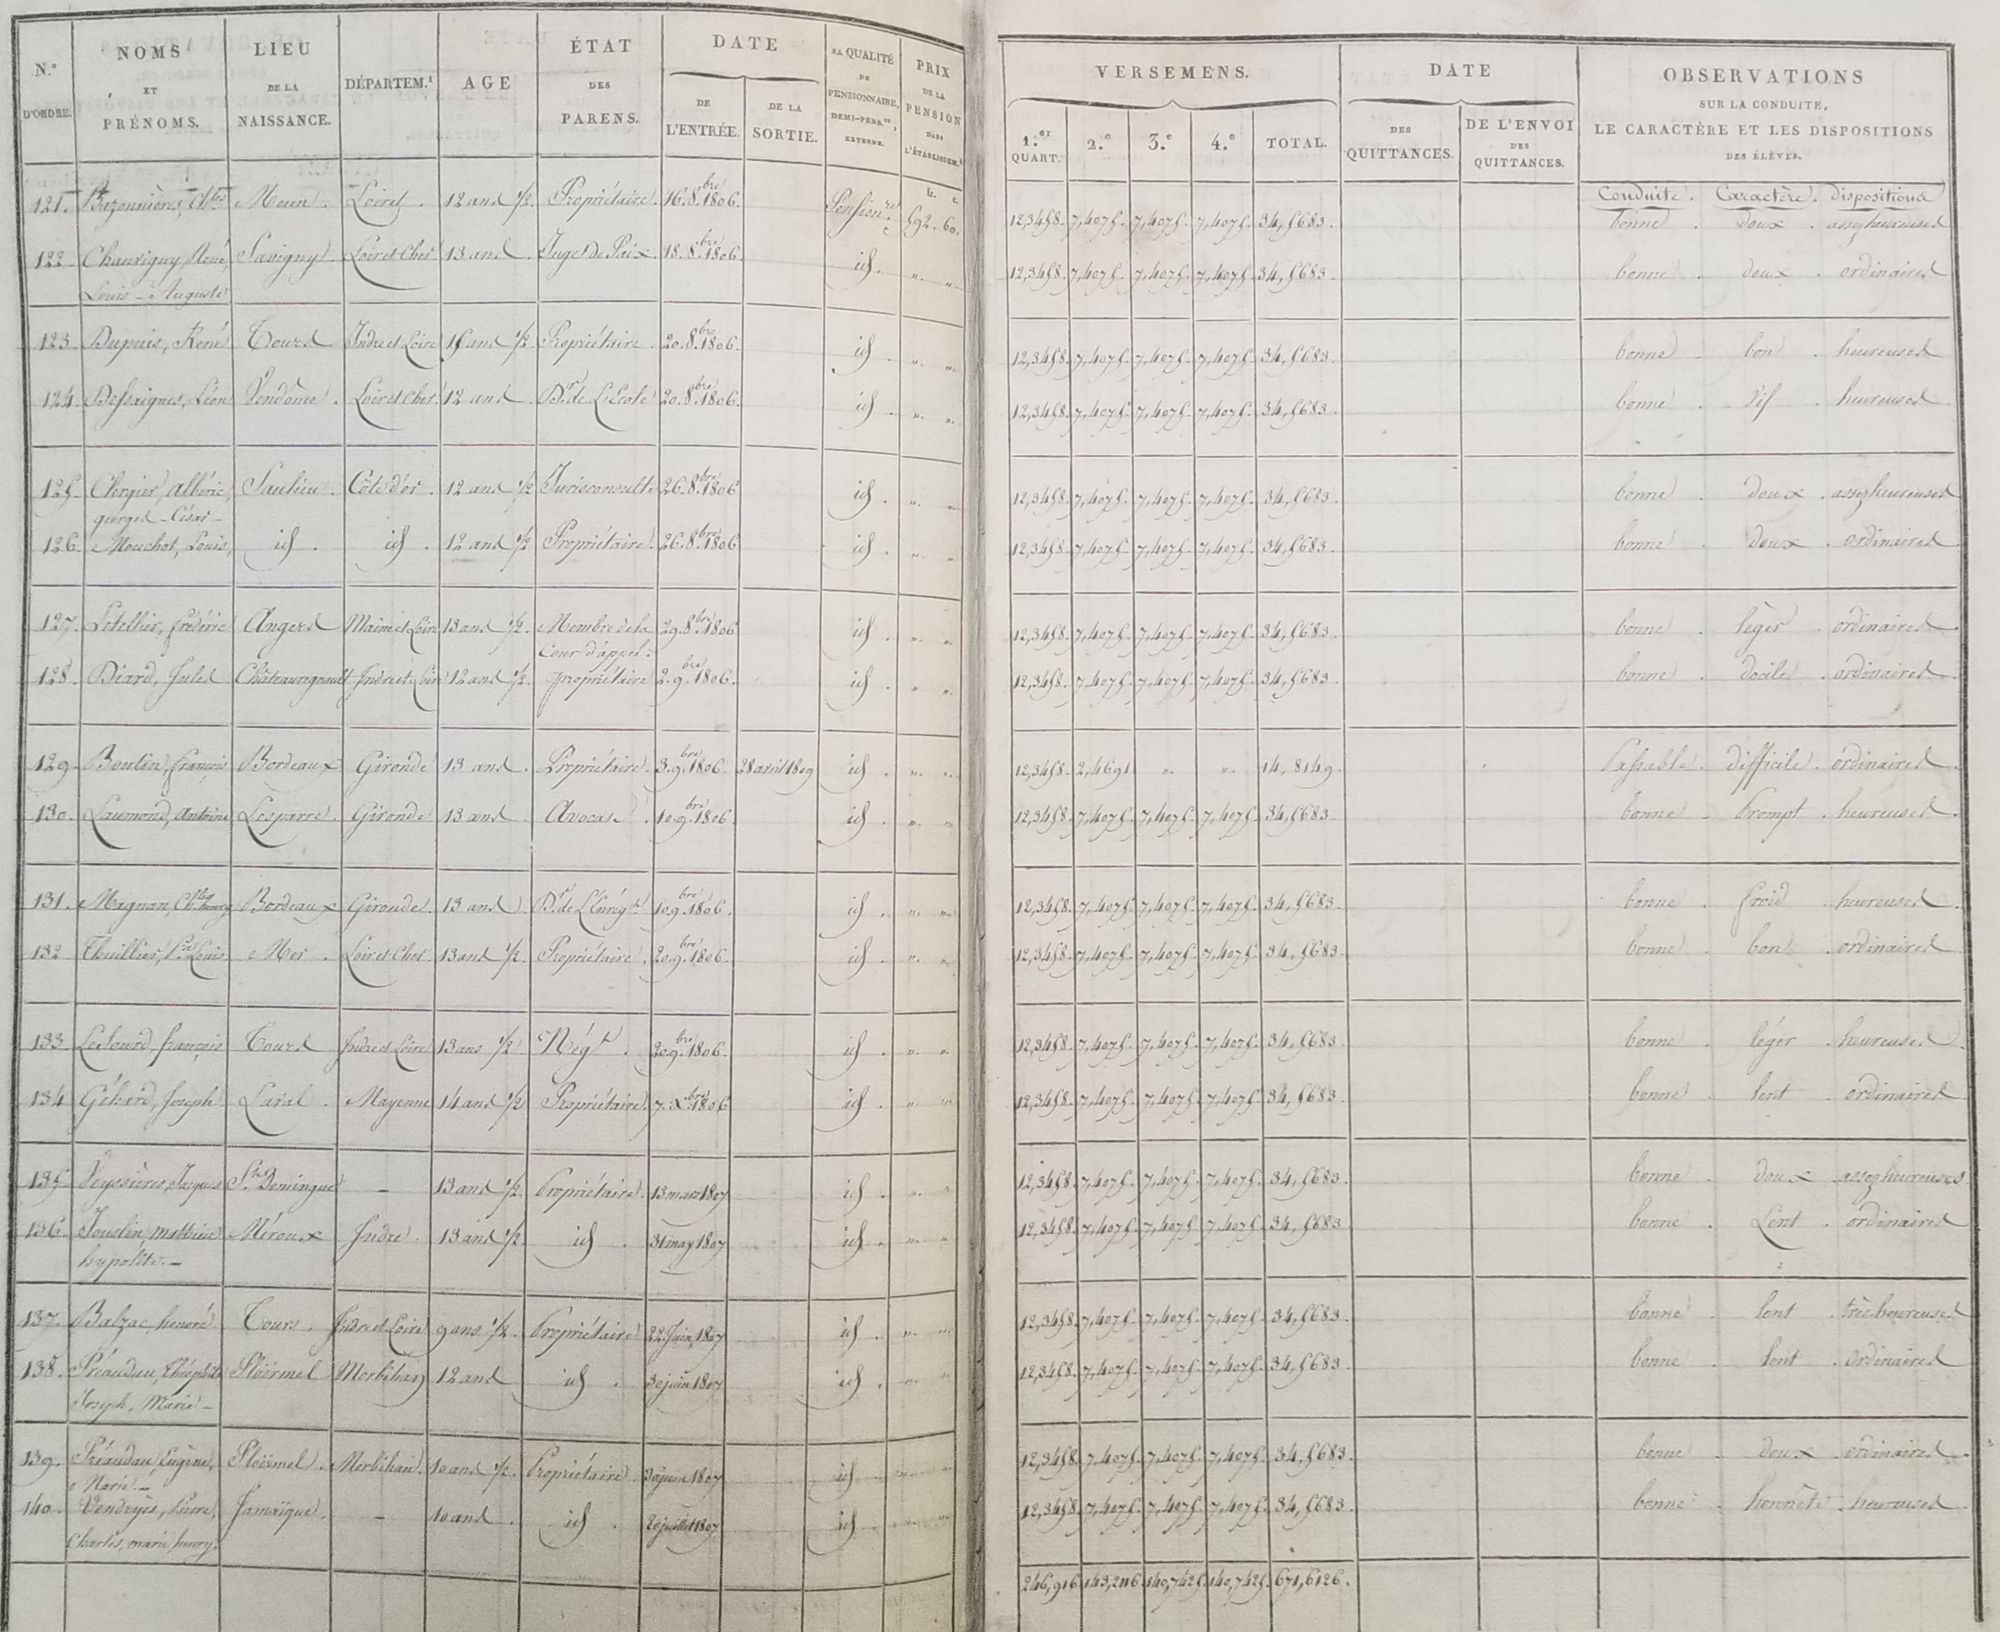 N.º D'ORDRE.
NOMS ET PRÉNOMS.
LIEU DE LA NAISSANCE.
DÉPARTEM.t
AGE
ÉTAT DES PARENS.
DATE
DE L'ENTRÉE.
DE LA SORTIE.
SA QUALITÉ DE PENSIONNAIRE, DEMI-PENS.re, EXTERNE.
PRIX DE LA PENSION DANS L'ÉTABLISSEM.t
VERSEMENS.
1.er QUART.
2.e
3.e
4.e
TOTAL.
DATE
DES QUITTANCES.
DE L'ENVOI DES QUITTANCES.
OBSERVATIONS
SUR LA CONDUITE,
LE CARACTÈRE ET LES DISPOSITIONS
DES ÉLÈVES.
fr. c.
Conduite. Caractère. dispositions
121. Bazonnières, Ch.les Meun. Loiret. 12 ans 1/2. Propriétaire. 16. 8.bre 1806. Pension.re 592. 60. 12,3458. 7,4075. 7,4075. 7,4075. 34,5683. bonne. doux. assez heureuses
122. Chauvigny, René, Savigny Loir et Cher 13 ans. Juge de Paix. 18. 8.bre 1806. id. " " 12,3458. 7,4075. 7,4075. 7,4075. 34,5683. bonne. doux. ordinaires
Louis-Auguste
123. Dupuis, René Tours Indre et Loire 15 ans 1/2. Propriétaire. 20. 8.bre 1806. id. " " 12,3458. 7,4075. 7,4075. 7,4075. 34,5683. bonne bon. heureuses
124. Dessaignes, Léon Vendôme. Loir et Cher 12 ans. D.r de L'Ecole 20. 8.bre 1806. id. " " 12,3458. 7,4075. 7,4075. 7,4075. 34,5683. bonne. vif. heureuses
125. Albéric, Saulieu. Côte d'or. 12 ans 1/2 Jurisconsulte 26. 8.bre 1806 id. " " 12,3458. 7,4075. 7,4075. 7,4075. 34,5683. bonne. doux. assez heureuses
georges-César-
126. Mouchot, Louis, id. id. 12 ans 1/2 Propriétaire. 26. 8.bre 1806 id. " " 12,3458. 7,4075. 7,4075. 7,4075. 34,5683. bonne. doux. ordinaires
127. Letellier, frédéric Angers Maine et Loire 13 ans 1/2. Membre de la 29. 8.bre 1806 id. " " 12,3458. 7,4075. 7,4075. 7,4075. 34,5683. bonne. léger. ordinaires
Cour d'appel.
128. Diard, Jules Châteauregnault Indre et Loire 12 ans 1/2. propriétaire 2. 9.bre 1806. id. " " 12,3458. 7,4075. 7,4075. 7,4075. 34,5683. bonne. docile. ordinaires
129. Boutin, françois Bordeaux Gironde 13 ans. Propriétaire. 3. 9.bre 1806. 28 avril 1809 id. " " 12,3458. 2,4691. " " 14,8149. Passable. difficile. ordinaires
130. Laumond, Antoine Lesparre. Gironde 13 ans. Avocat. 10. 9.bre 1806. id. " " 12,3458. 7,4075. 7,4075. 7,4075. 34,5683. bonne. Prompt. heureuses
131. Magnan, Ch.les henry Bordeaux Gironde. 13 ans D.r de L'Enrég.t 10. 9.bre 1806. id. " " 12,3458. 7,4075. 7,4075. 7,4075. 34,5683. bonne. froid heureuses
132 Thuillier, Louis Mer. Loir et Cher 13 ans 1/2. Propriétaire. 20. 9.bre 1806. id. " " 12,3458. 7,4075. 7,4075. 7,4075. 34,5683. bonne. bon ordinaires
133. Lestourd, françois Tours Indre et Loire 13 ans 1/2 Nég.t. 20. 9.bre 1806. id. " " 12,3458. 7,4075. 7,4075. 7,4075. 34,5683. bonne léger. heureuses
134 Géhard, Joseph Laval. Mayenne 14 ans 1/2 Propriétaire. 7. X.bre 1806 id. " " 12,3458. 7,4075. 7,4075. 7,4075. 34,5683. bonne. lent. ordinaires
135 Veyssières, Jacques S.t Domingue - 13 ans 1/2. Propriétaire. 13 mars 1807 id. " " 12,3458. 7,4075. 7,4075. 7,4075. 34,5683. bonne doux assez heureuses
136. Jouslin, Mathieu Méroux Indre. 13 ans 1/2 id. 31 may 1807 id. " " 12,3458. 7,4075. 7,4075. 7,4075. 34,5683 bonne. Lent. ordinaires
hypolite.-
137. Balzac, honoré Tours. Indre et Loire 9 ans 1/2. Propriétaire 22 Juin, 1807 id. " " 12,3458. 7,4075. 7,4075. 7,4075. 34,5683 bonne. lent. très heureuses
138. Préaudau, Théophile Ploërmel Morbihan 12 ans id. 30 juin 1807 id. " " 12,3458. 7,4075. 7,4075. 7,4075. 34,5683 bonne. lent. ordinaires
Joseph, Marie-
139. Préaudau, Eugène, Ploërmel. Morbihan. 10 ans 1/2. Propriétaire. 30 juin 1807 id. " " 12,3458. 7,4075. 7,4075. 7,4075. 34,5683. bonne. doux. ordinaires
Marie.-
140. Vendryès, Pierre, Jamaïque. - 10 ans. id. 20 juillet 1807 id " " 12,3458. 7,4075. 7,4075. 7,4075. 34,5683. bonne. honnête. heureuses
Charles, marie, henry.
246,916 143,2116 140,7425. 140,7425. 671,6126.